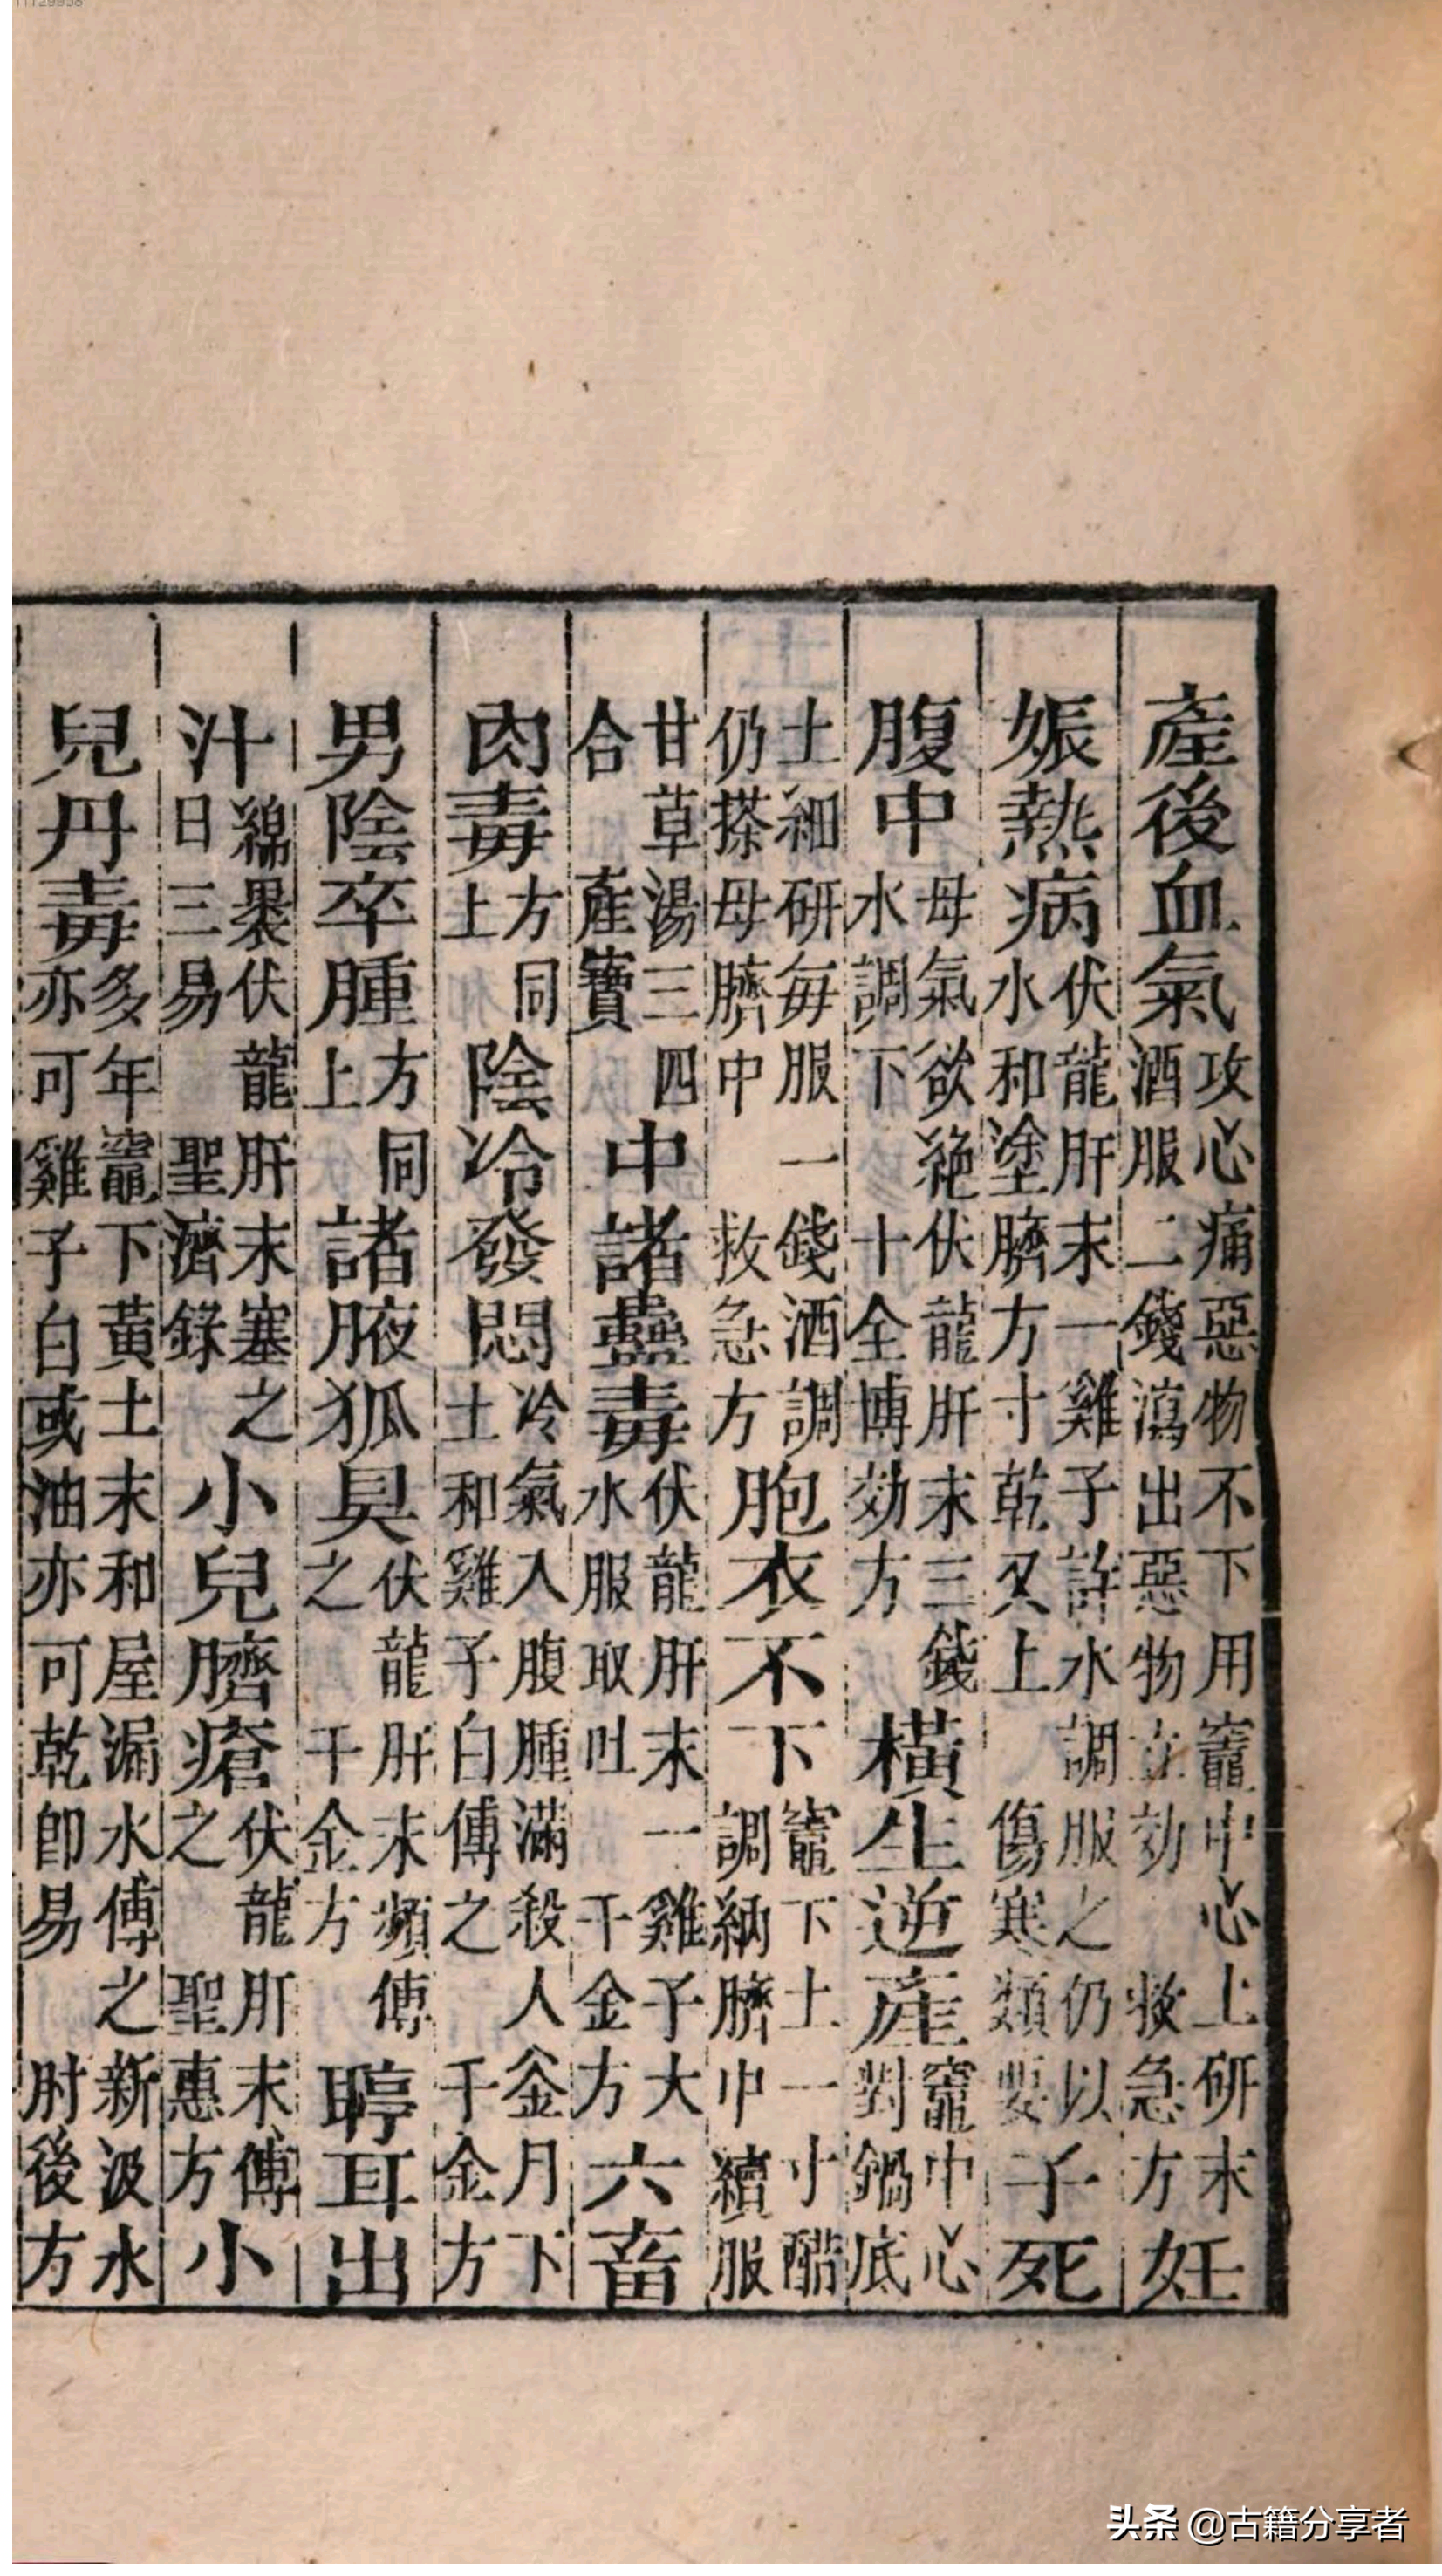 11129958
產後血氣攻心痛惡物不下用竈中心上研末酒服二錢瀉出惡物立効 救急方妊
娠熱病伏龍肝末一雞子許水調服之仍以水和塗臍方寸乾又上 傷寒類要子死
腹中母氣欲絶伏龍肝末三錢水調下 十全博効方橫生逆產竈中心對鍋底
土細研每服一錢酒調仍搽母臍中 救急方胞衣不下竈下土一寸醋調納臍中續服
甘草湯三四合 產寶中諸蠱毒伏龍肝末一雞子大水服取吐 千金方六畜
肉毒方同上陰冷發悶冷氣入腹腫滿殺人釜月下土和雞子白傅之 千金方
男陰卒腫方同上諸腋狐臭伏龍肝末頻傅之 千金方聤耳出
汁綿裹伏龍肝末塞之日三易 聖濟錄小兒臍瘡伏龍肝末傅之 聖惠方小
兒丹毒多年竈下黃土末和屋漏水傅之新汲水亦可雞子白或油亦可乾卽易 肘後方
头条 @古籍分享者